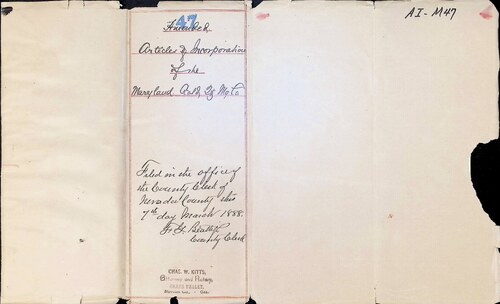 47
Amended
Articles of Incorporation
of the
Maryland
Filed in the office of
the County Clerk of
Nevada County this
7th day March 1888.
County Clerk
CHAS. W. KITTS,
Attorney and Notary,
GRASS VALLEY,
AI-M47